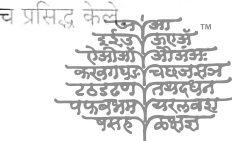 च प्रसिद्ध केले
अ आ TM
इईउ ऊएऍ
ऐओऑ औअंअः
कखगघङ चछजझञ
टठडढण तथदधन
पफबभम यरलवश
षसह ळक्षज्ञ